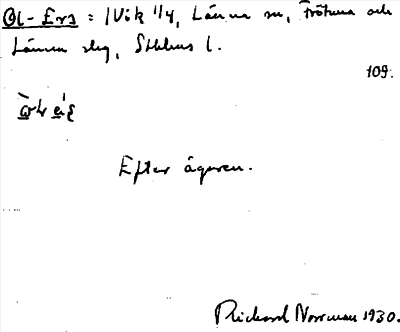 Ol-Ers : /Vik 1/4, Länna sn, Frötuna och
Länna slg, Sthlms l.
109.
Efter ägaren.
Richard Norrman 1930.